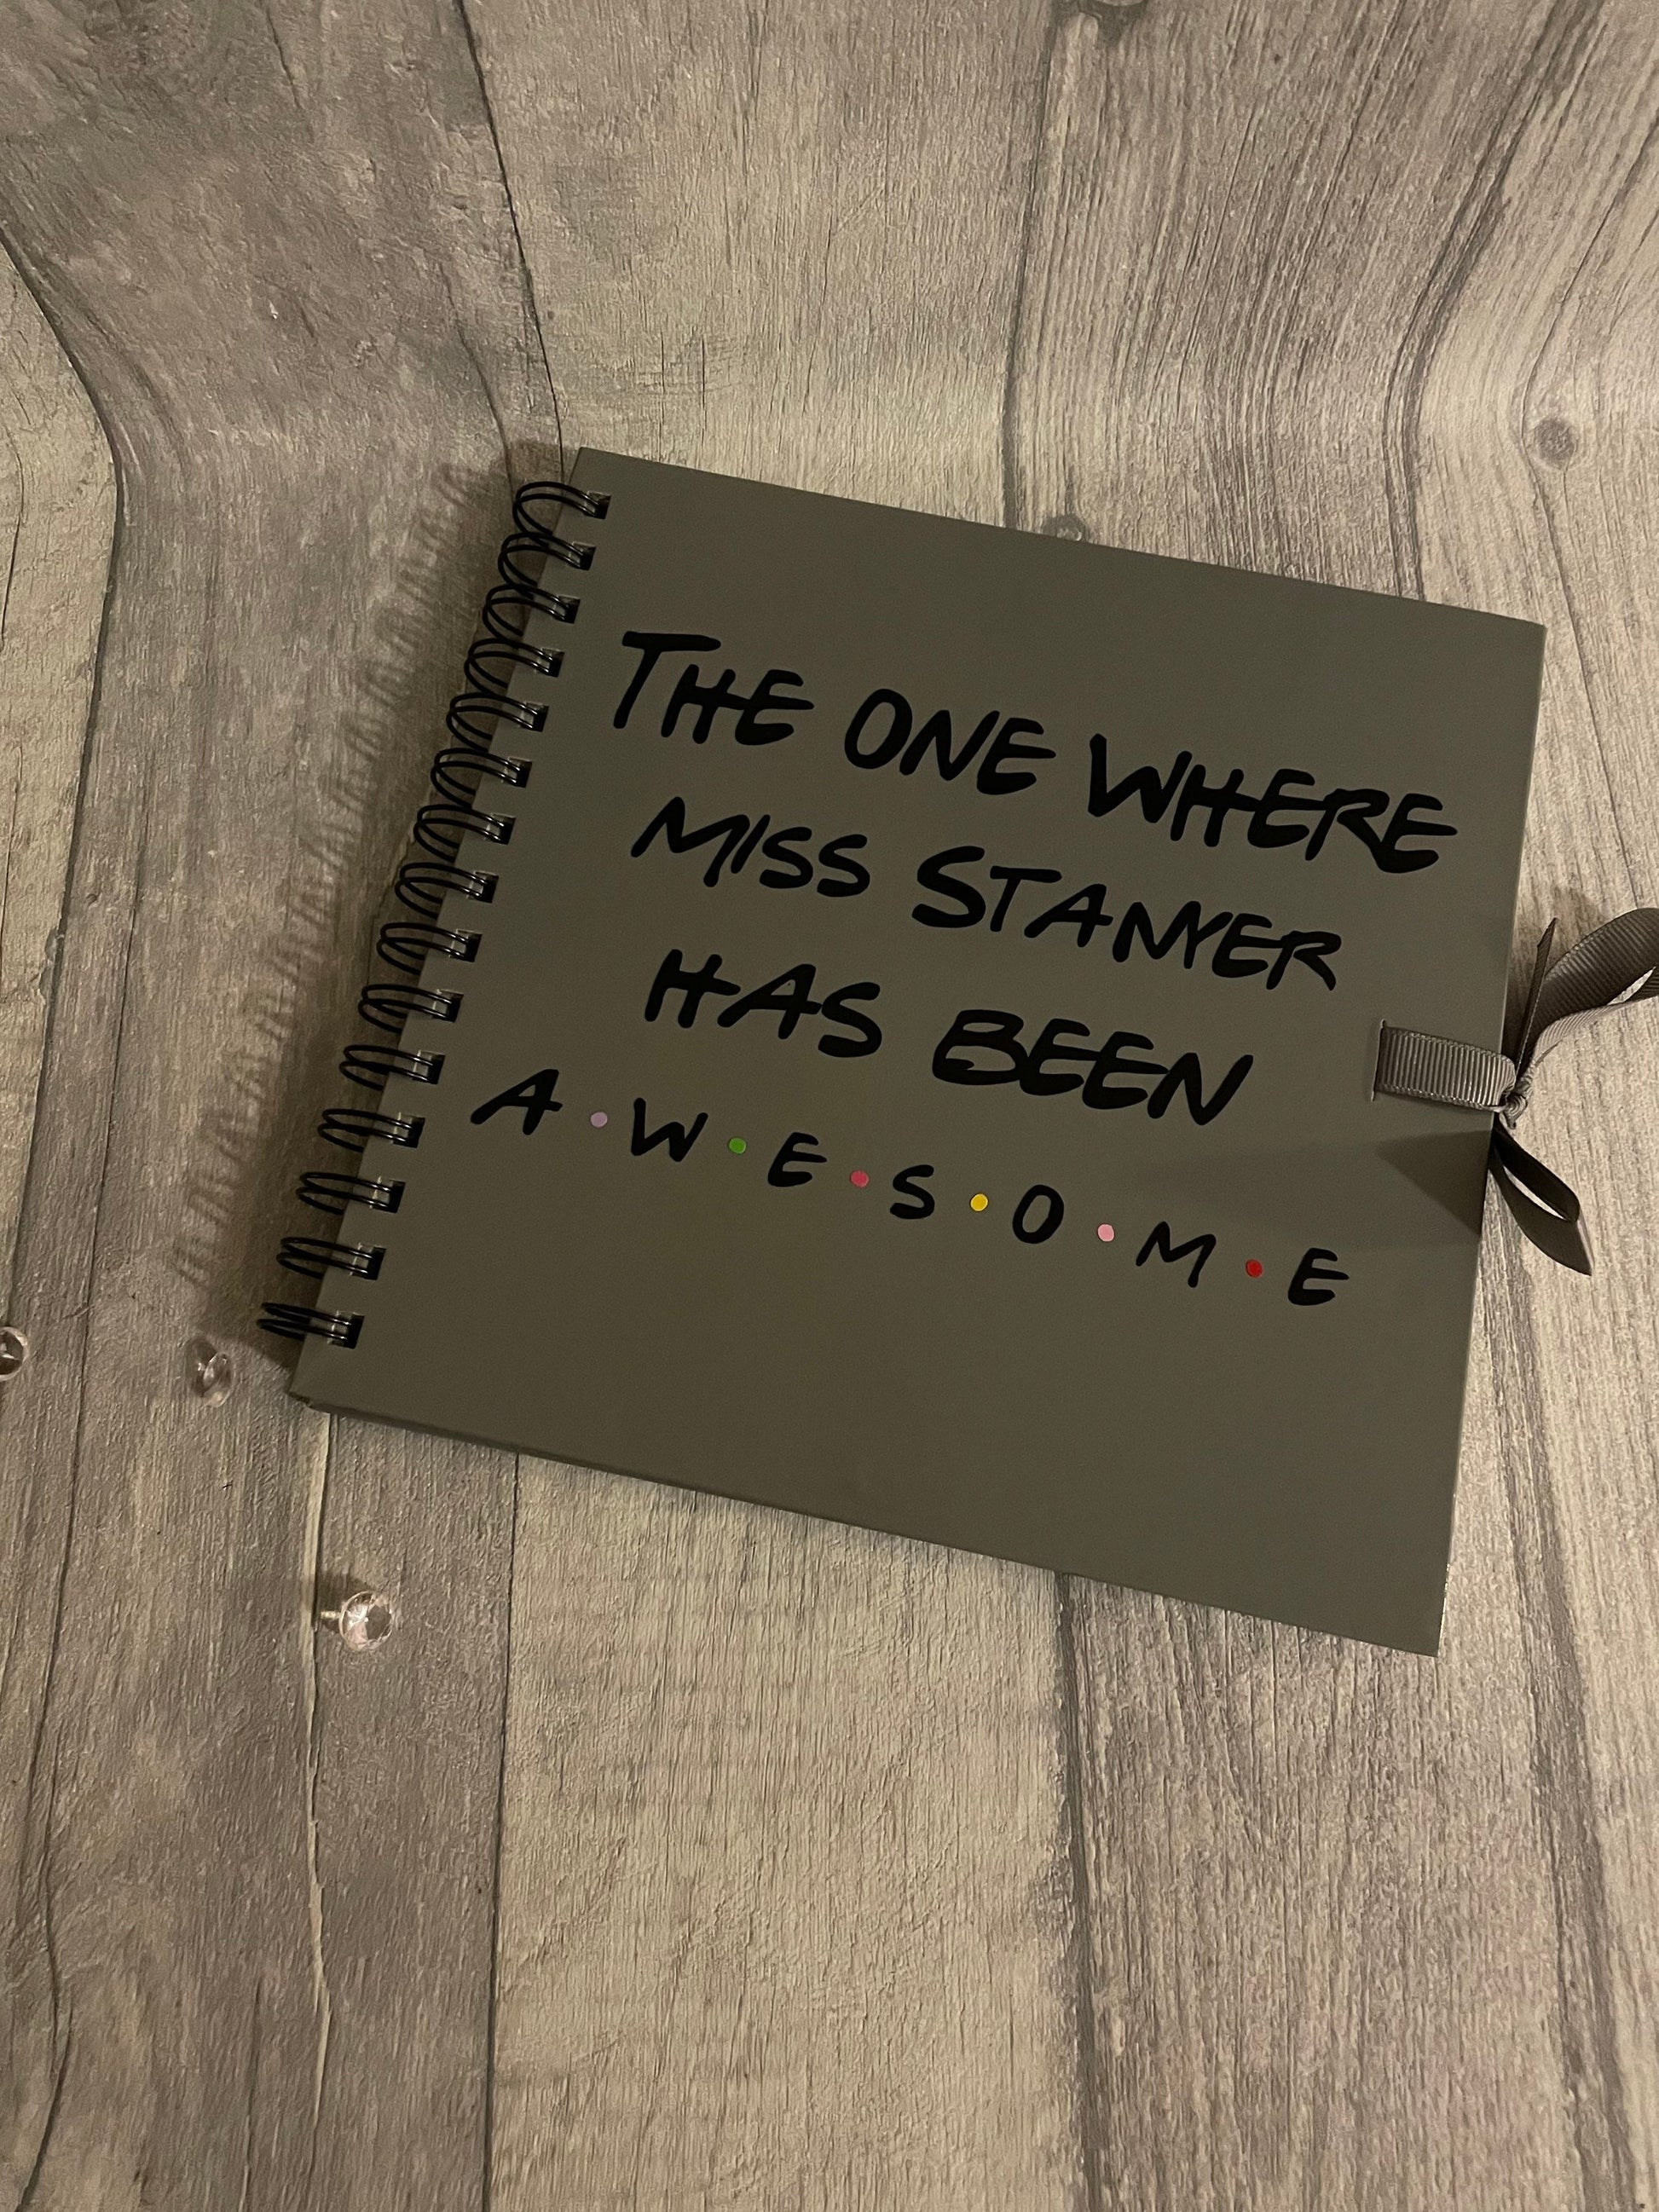 THE ONE WHERE
MISS STANYER
HAS BEEN
A•W•E•S•O•M•E